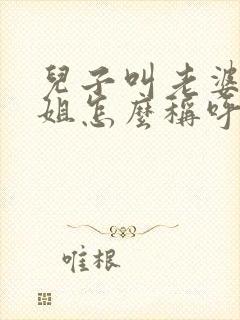 兒子叫老婆
姐怎麼稱呼
唯根